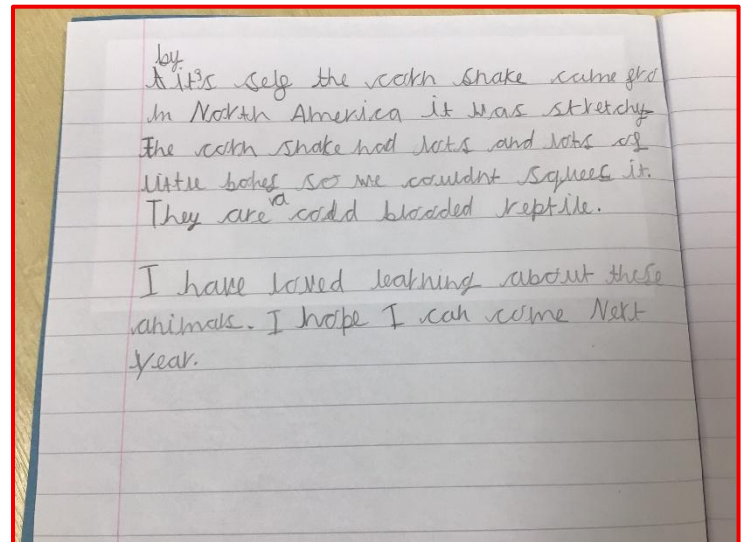 by
it's self the corn snake came fro
in North America it was stretchy
the corn snake had lots and lots of
little bones so we couldnt squees it.
They are a codd blooded reptile.
I have loved learning about these
animals. I hope I can come Next
year.